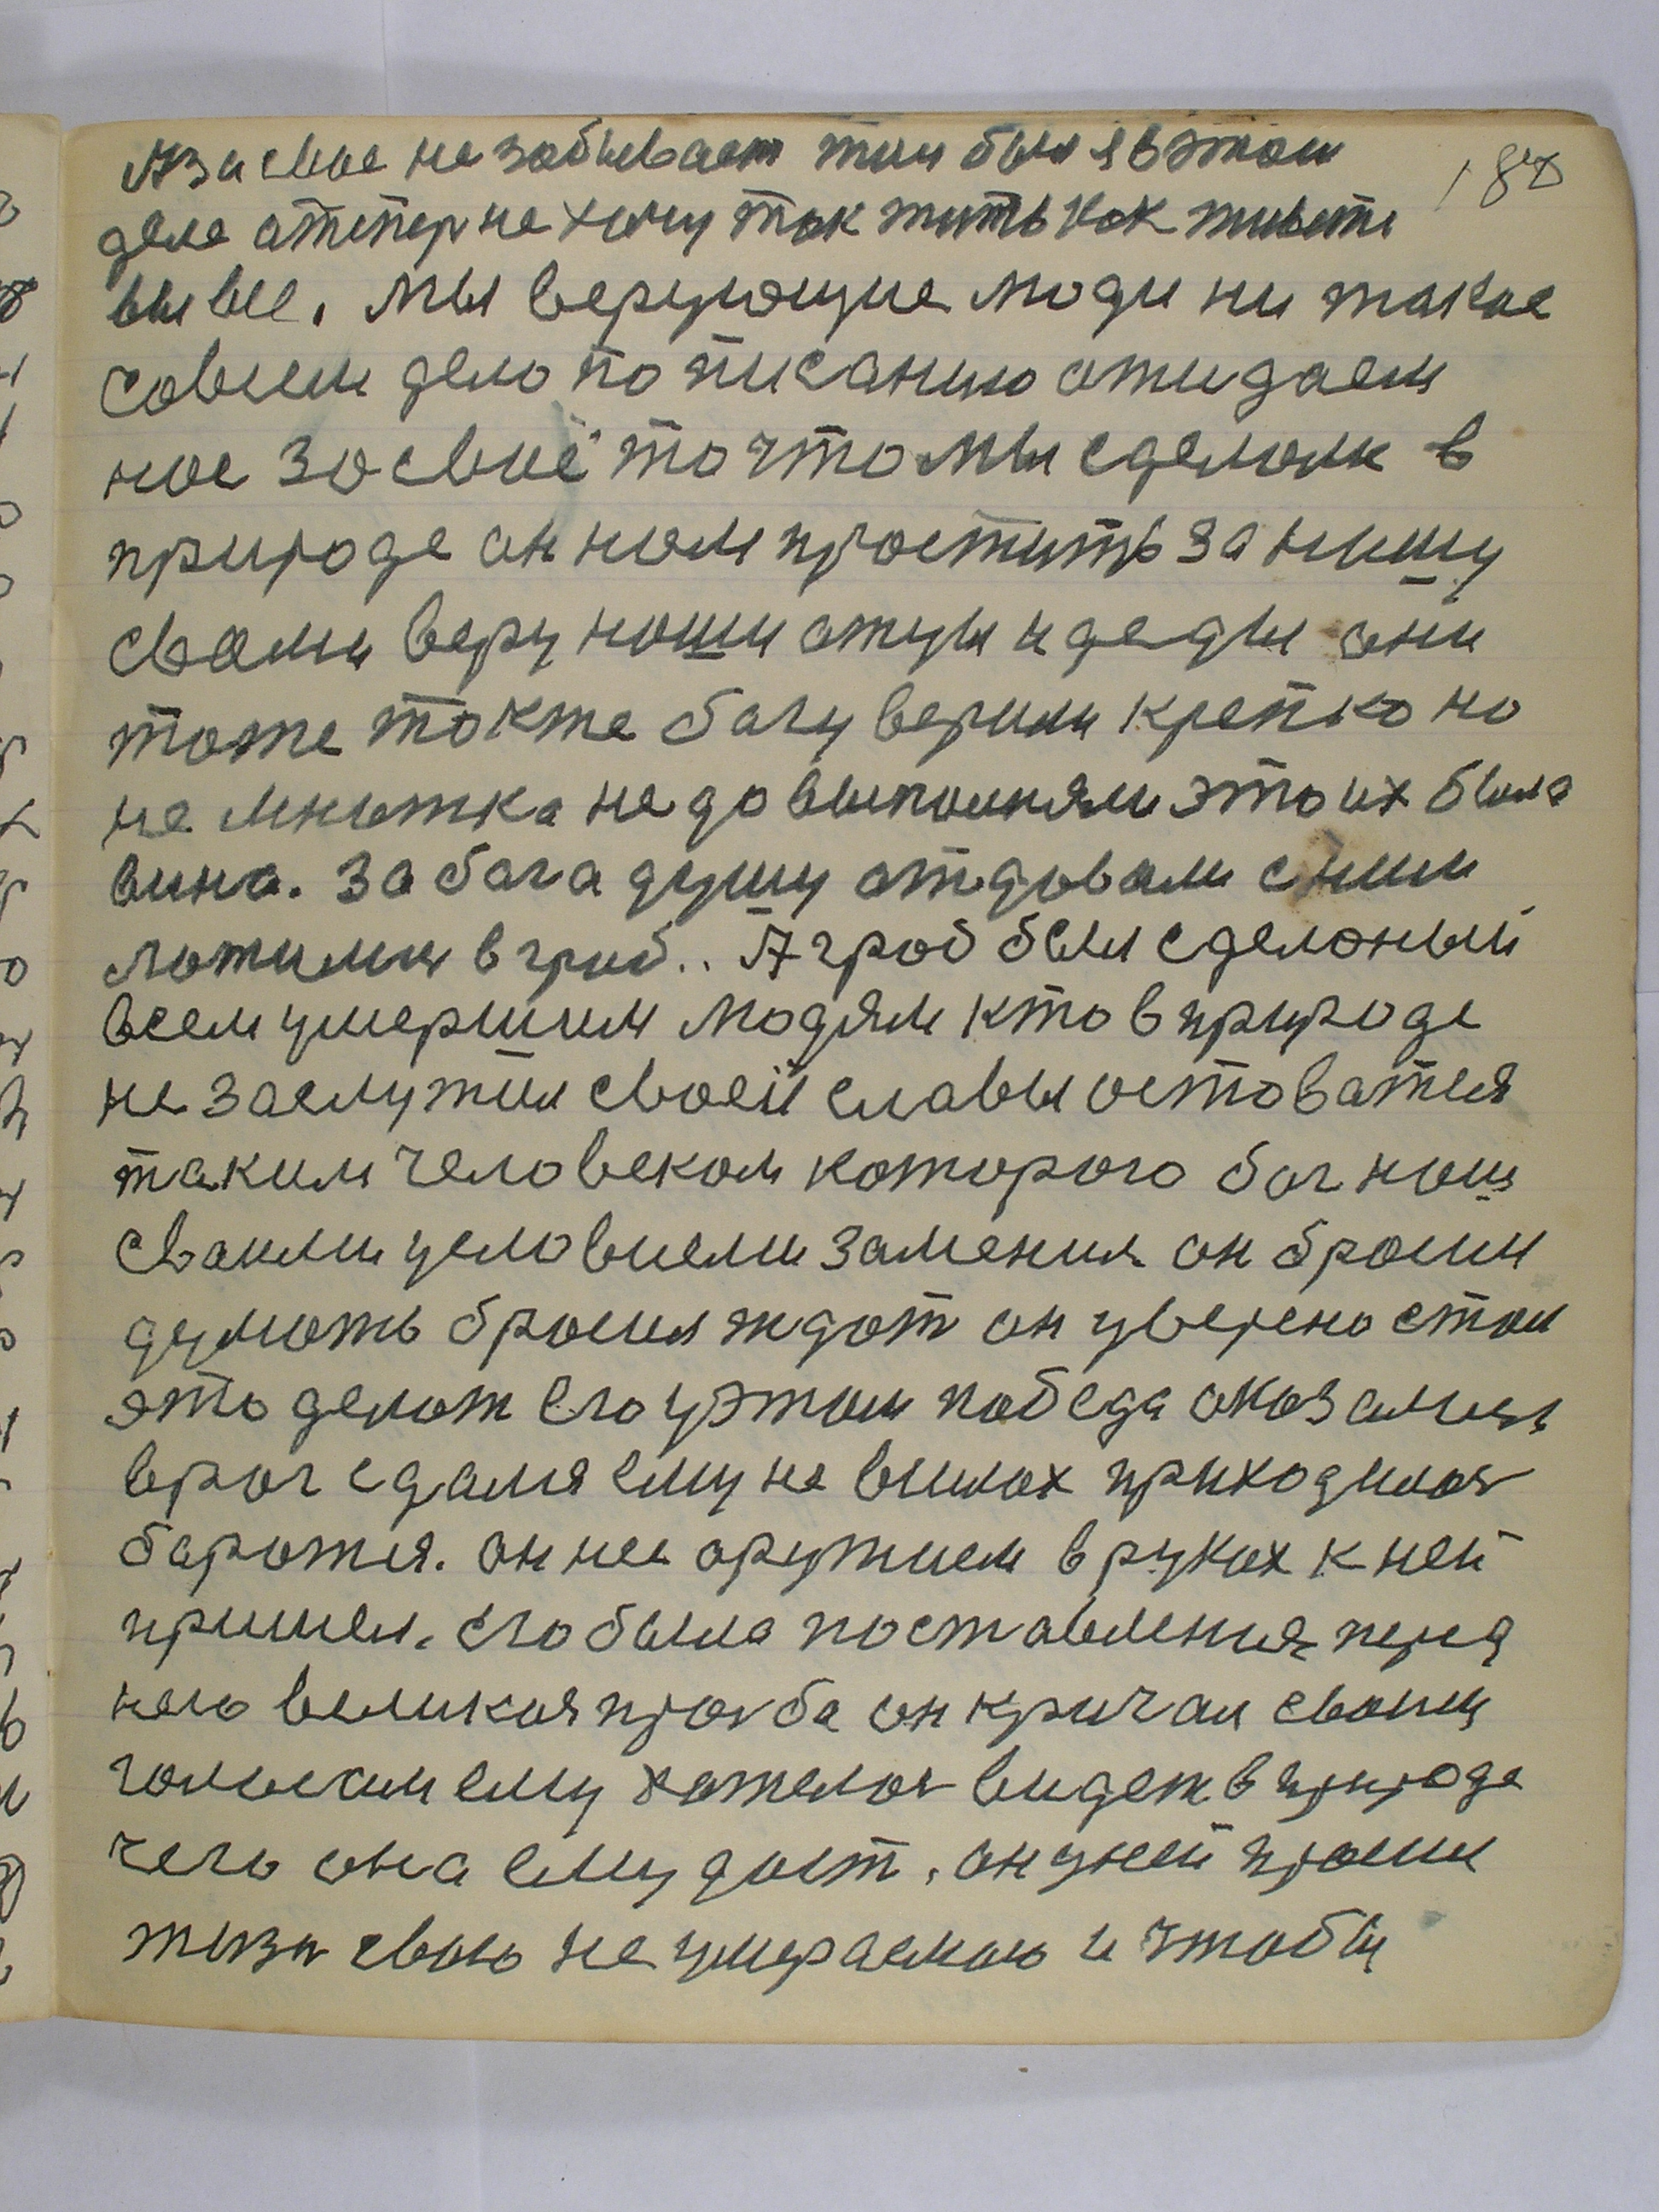 187
А за свое не забывает жил был я в этом
деле а тепер не хочу так жить как живете
вы все. Мы верующие люди ни такое
совсем дело по писанию ожидаем
нас за своё то что мы сделали в
природе он нам простить за нашу
веру наши отцы и деды они
тоже также богу верили крепко но
не множка не довыполняли это их была
вина. За бога душу отдовали с ним
ложился в гроб.. А гроб был сделоный
всем умершим людям кто в природе
не заслужил своей славы остоватся
таким человеком которого бог наш
своими условиеми заменил он бросил
думать бросил ждат он уверено стал
это делат его у этом победа оказалась
враг сдался ему не в силах приходилос
баротся. он не с оружием в руках к ней
пришел. его была поставления перед
него великая прозба он кричал своим
голосам ему хателос видет в природе
чего она ему даст. он у ней просил
жизн свою не умераемаю и чтобы